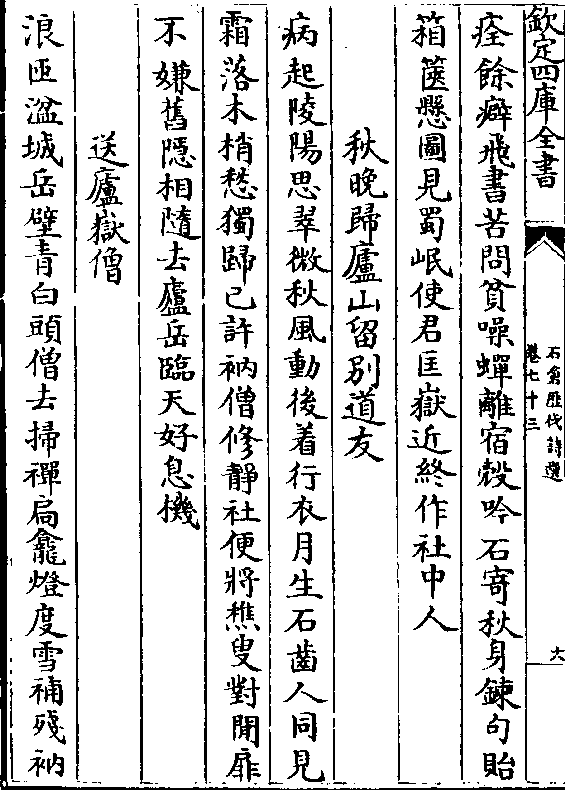 欽定四庫全書
石倉歷代詩選
卷七十三
六
痊餘癖飛書苦問貧噪蟬離宿殼吟石寄秋身鍊句貽
箱篋懸圖見蜀岷使君匡嶽近終作社中人
秋晚歸廬山留别道友
病起陵陽思翠微秋風動後着行衣月生石齒人同見
霜落木梢愁獨歸已許衲僧修静社便將樵叟對閒扉
不嫌舊隱相隨去廬岳臨天好息機
送廬嶽僧
浪匝湓城岳壁青白頭僧去掃禪扃龕燈度雪補殘衲